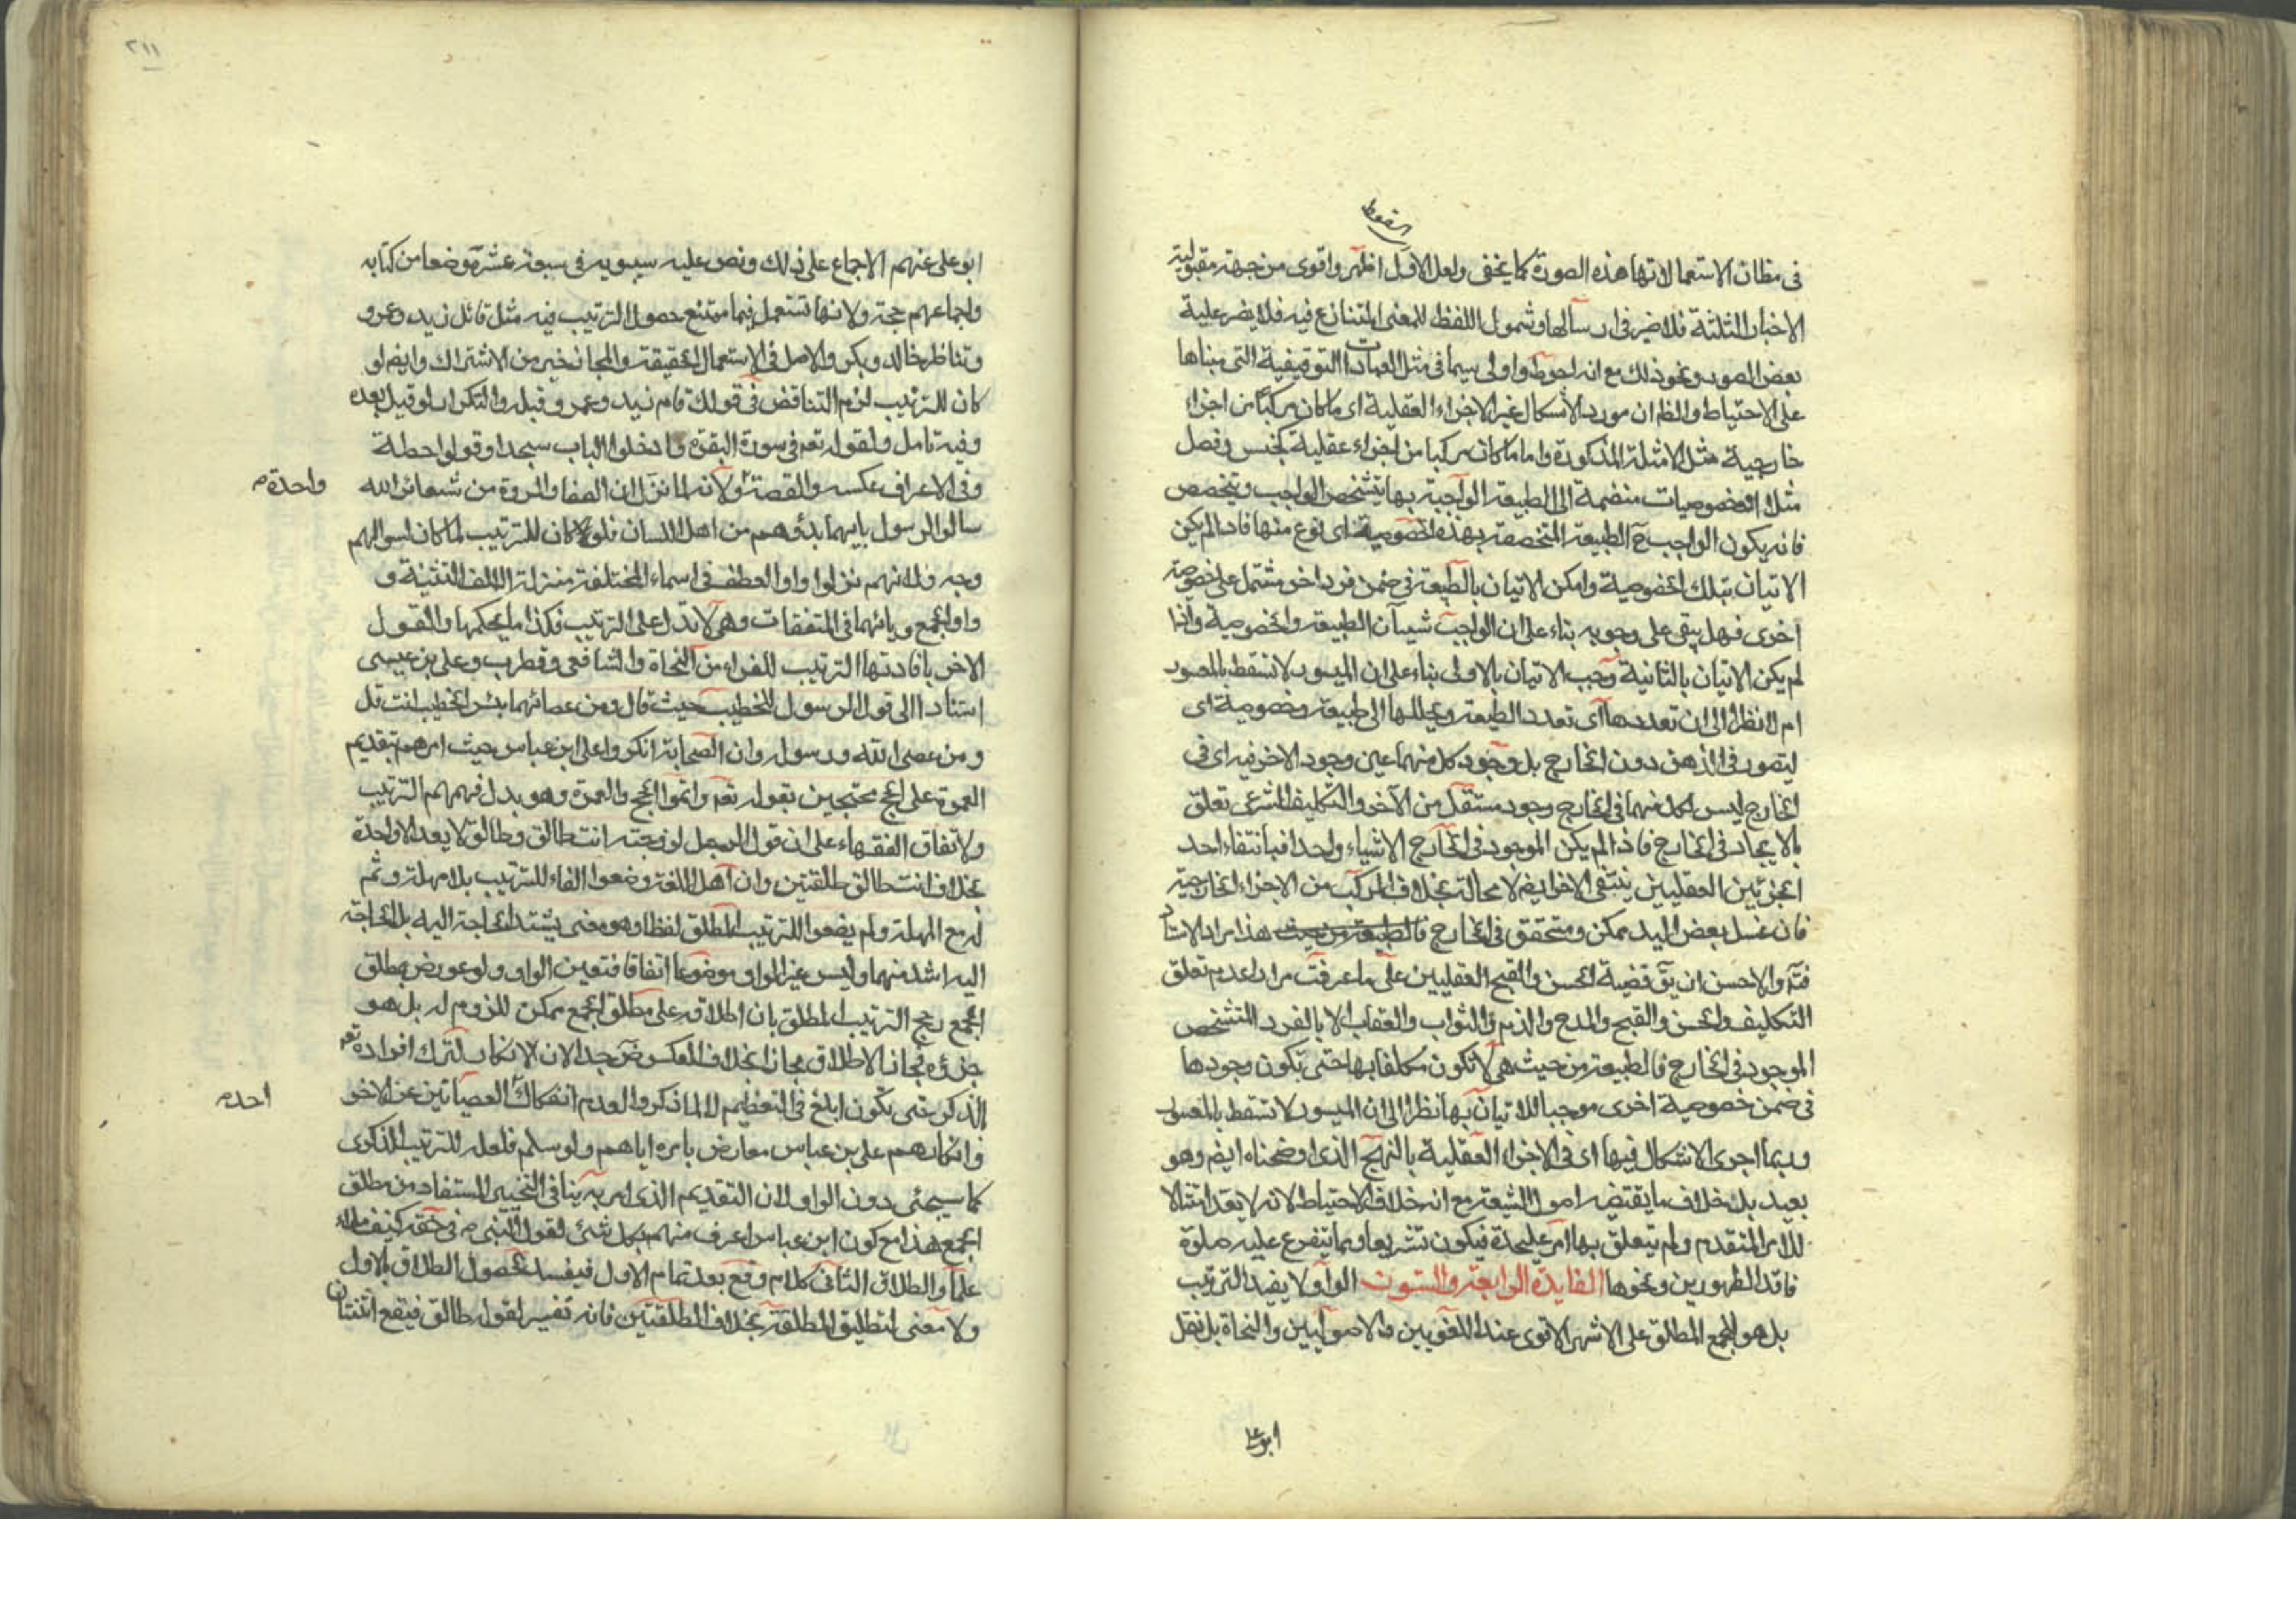 السقوط
فى مظان الاستعمالاتها هذه الصورة كما يخفى ولعل الاول اظهر واقوى من جهة مقبولية
الاخبار الثلثة فلا ضير فى ارسالها وشمول اللفظ للمعنى المتنازع فيه فلا يضر علية
بعض الصور ونحو ذلك مع انه احوط واولى سيما فى مثل العبادات التوقيفية التى مبناها
على الاحتياط والظ ان مورد الاشكال غير الاجزاء العقلية اى ما كان مركبا من اجزاء
خارجية مثل الامثلة المذكورة واما ما كان مركبا من اجزاء عقلية كجنس وفصل
مثلا او خصوصيات منضمة الى الطبيعة الواجبة بها يتشخص الواجب ويتخصص
فانه يكون الواجب ح الطبيعة المتخصصة بهذه الخصوصية اى نوع منها فاذا لم يكن
الاتيان بتلك الخصوصية وامكن الاتيان بالطبيعة فى ضمن فرد اخر مشتمل على خصوصية
اخرى فهل يبقى على وجوبه بناء على ان الواجب شيئان الطبيعة والخصوصية واذا
لم يكن الاتيان بالثانية وجب الاتيان بالاولى بناء على ان الميسور لا تسقط بالمعسور
ام لا نظرا الى ان تعددها اى تعدد الطبيعة وتحللها الى طبيعة وخصوصية اى
ليتصور فى الذهن دون الخارج بل وجود كل منهما عين وجود الاخر فيه اى فى
الخارج ليس لكل منهما فى الخارج وجود مستقل من الآخر والتكليف الشرعى تعلق
بالايجاد فى الخارج فاذا لم يكن الموجود فى الخارج الا شياء واحدا فبانتفاء احد
الجزئين العقليين ينتفى الاخر ايض لا محالة بخلاف المركب من الاجزاء الخارجية
فان غسل بعض اليد ممكن ومتحقق فى الخارج فالطبيعة من حيث هذا مراد الاستاد
فته والاحسن ان يق قضية الحسن والقبح العقليين على ما عرفت مرارا عدم تعلق
التكليف والحسن والقبح والمدح والذم والثواب والعقاب الا بالفرد المتشخص
الموجود فى الخارج فالطبيعة من حيث هى لا تكون مكلفا بها حتى يكون وجودها
فى ضمن خصوصية اخرى موجبا للاتيان بها نظرا الى ان الميسور لا تسقط بالمعسور
وربما اجرى الاشكال فيها اى فى الاجزاء العقلية بالنهج الذى اوضحناه ايض وهو
بعيد بل خلاف ما يقتضيه اصول الشيعة مع انه خلاف الاحتياط لانه لا يعد امتثالا
للامر المتقدم ولم يتعلق بها امر عليحدة فيكون تشريعا ومما يتفرع عليه صلوة
فاقد الطهورين ونحوها الفايدة الرابعة والستون الواو لا يفيد الترتيب
بل هو للجمع المطلق على الاشهر الاقوى عند اللغويين والاصوليين والنحاة بل نقل
ابو على
٢١١
ابو على عنهم الاجماع على ذلك ونص عليه سيبويه فى سبعة عشرة موضعا من كتابه
واجماعهم حجة ولانها تستعمل فيما يمتنع حصول الترتيب فيه مثل تقاتل زيد وعمرو
وتناظر خالد وبكر والاصل فى الاستعمال الحقيقة والمجاز خير من الاشتراك وايض لو
كان للترتيب لزم التناقض فى قولك قام زيد وعمرو قبله والتكرار لو قيل بعده
وفيه تامل ولقوله تعم فى سورة البقرة وادخلوا الباب سجدا وقولوا حطة
وفى الاعراف عكسه والقصة ولانه لما نزل ان الصفا والمروة من شعائر الله
واحدة م
سالوا الرسول بايهما بدؤ وهم من اهل اللسان فلو كان للترتيب لما كان لسوالهم
وجه ولانهم نزلوا واو العطف فى اسماء المختلفة منزلة الالف التثنية و
واو الجمع ويائهما فى المتفقات وهى لا تدل على الترتيب فكذا ما يحكمها والقول
الاخر بافادتها الترتيب للفراء من النحاة والشافعى وقطرب وعلى بن عيسى
استنادا الى قول الرسول للخطيب حيث قال ومن عصاهما بئس الخطيب انت قل
ومن عصى الله ورسوله وان الصحابة انكروا على ابن عباس حيث امرهم بتقديم
العمرة على الحج محتجين بقوله تعم واتموا الحج والعمرة وهو يدل فهمهم الترتيب
ولاتفاق الفقهاء على ان قول الرجل لزوجته انت طالق وطالق لا يعد الا واحدة
بخلاف انت طالق طلقتين وان اهل اللغة وضعوا الفاء للترتيب بلا مهلة وثم
له مع المهلة ولم يضعوا للترتيب المطلق لفظا وهو معنى يشتد الحاجة اليه بل الحاجة
اليه اشد منهما وليس غير الواو موضوعا اتفاقا فتعين الواو ولو عورض بمطلق
الجمع رجح الترتيب المطلق بان اطلاقه على مطلق الجمع ممكن للزوم له بل هو
جزؤه فجاز الاطلاق مجازا بخلاف العكس جدا لان الانكار لترك افراده تعم
الذكر حتى يكون ابلغ فى التعظيم لا لما ذكر والعدم انفكاك العصيانين عن الاخر
احده م
وانكارهم على بن عباس معارض بامره اياهم ولو سلم فلعله للترتيب الذكرى
كما سيجئى دون الواو لان التقديم الذى امر به ينافى التخيير المستفاد من مطلق
الجمع هذا مع كون ابن عباس اعرف منهم بكل شئ لقول النبى ص فى حقه كنيف ملاء
علما والطلاق الثانى كلام وقع بعد تمام الاول فيفسد لحصول الطلاق بالاول
ولا معنى لتطليق المطلقة بخلاف الطلقتين فانه تفسير لقوله طالق فيقع اثنتان